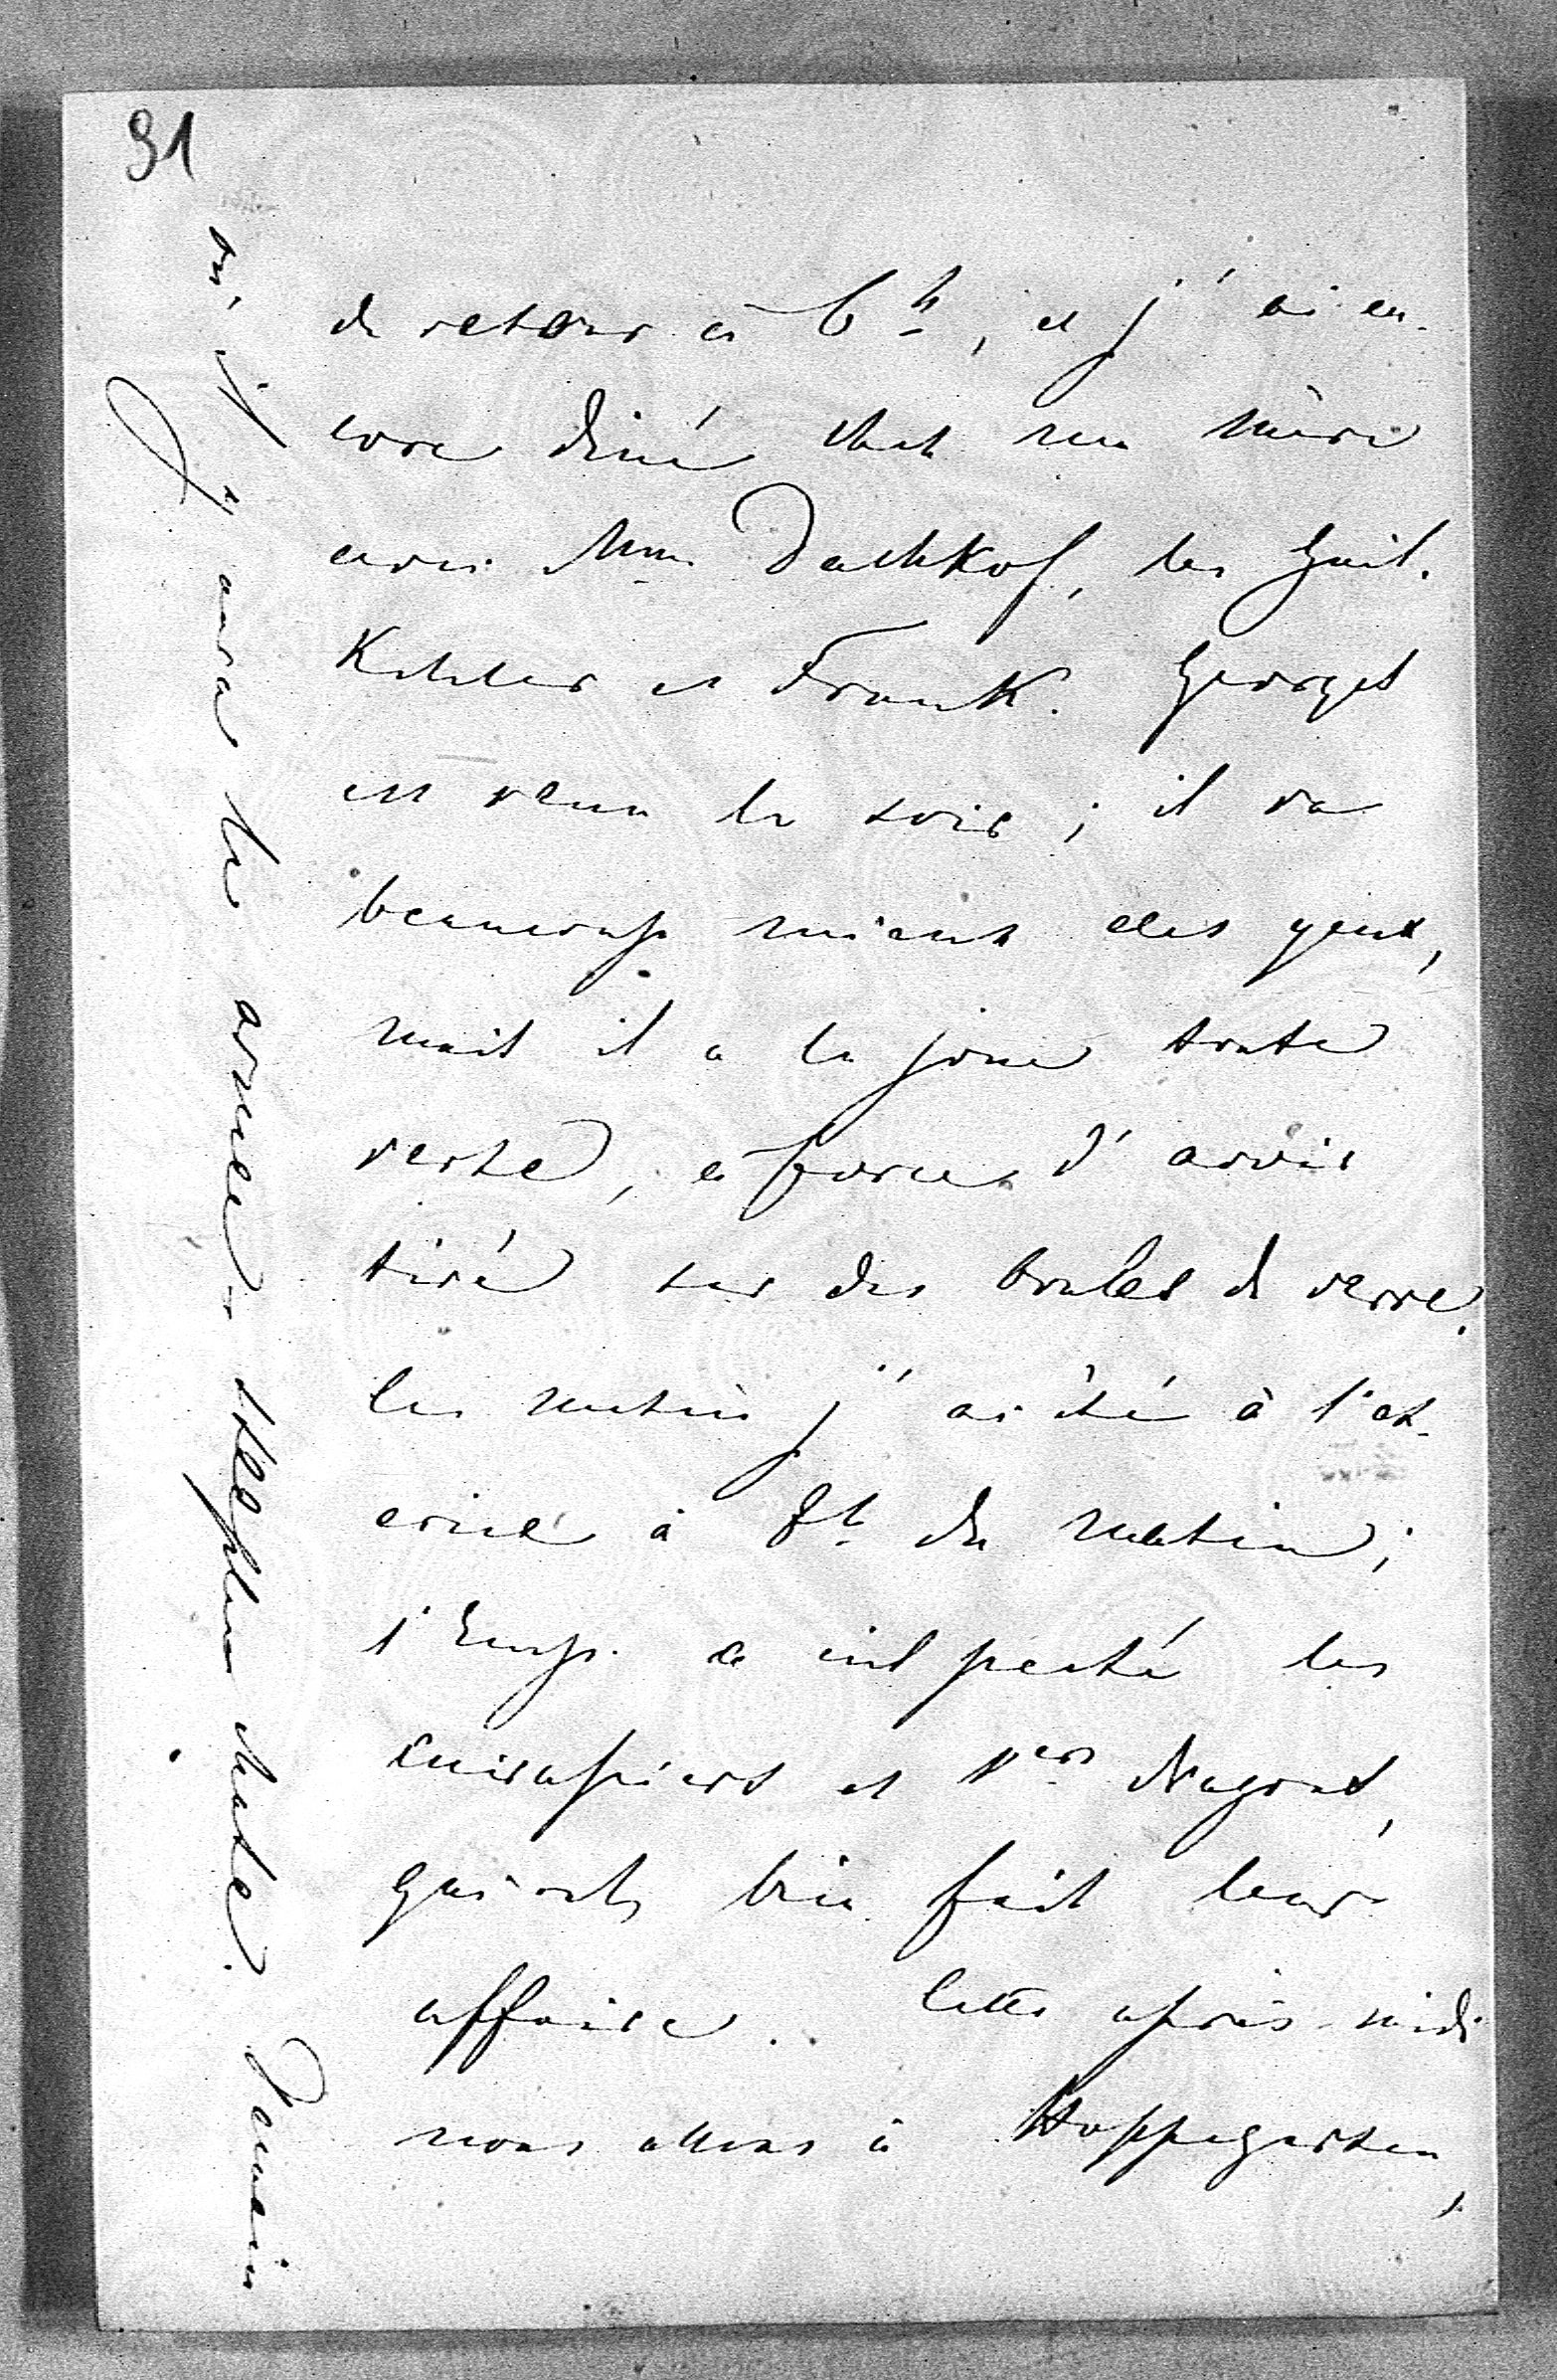 91
de retour à 6h, et j'ai en-
core diné chez ma mère
avec Mme Dachkof, les Guil.
et Frank. Georges
est venu le soir ; il va
beaucoup mieux des yeux,
mais il a la joue toute
verte, à force d'avoir
tiré sur des boules de verre.
Ce matin j'ai été à l'ex-
ercice à 8h du matin ;
l'Emp. a inspecté les
cuirassiers et 1ers dragons,
qui ont bien fait leur
affaire. Cette après-midi
nous allons à Hoppegarten,
où il y aura les courses - steeplechase. Demain